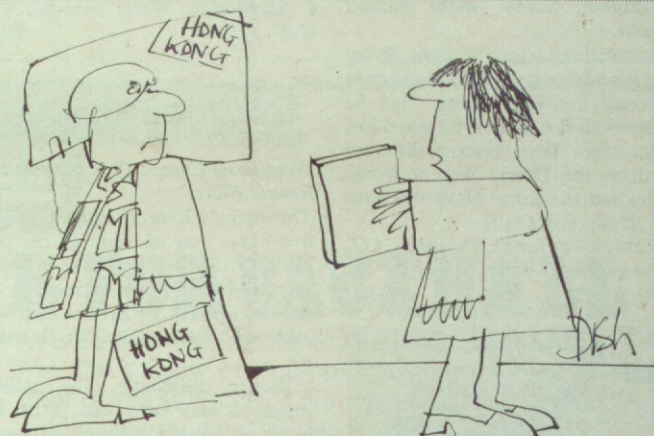 HONG
KONG
HONG
KONG
Dish